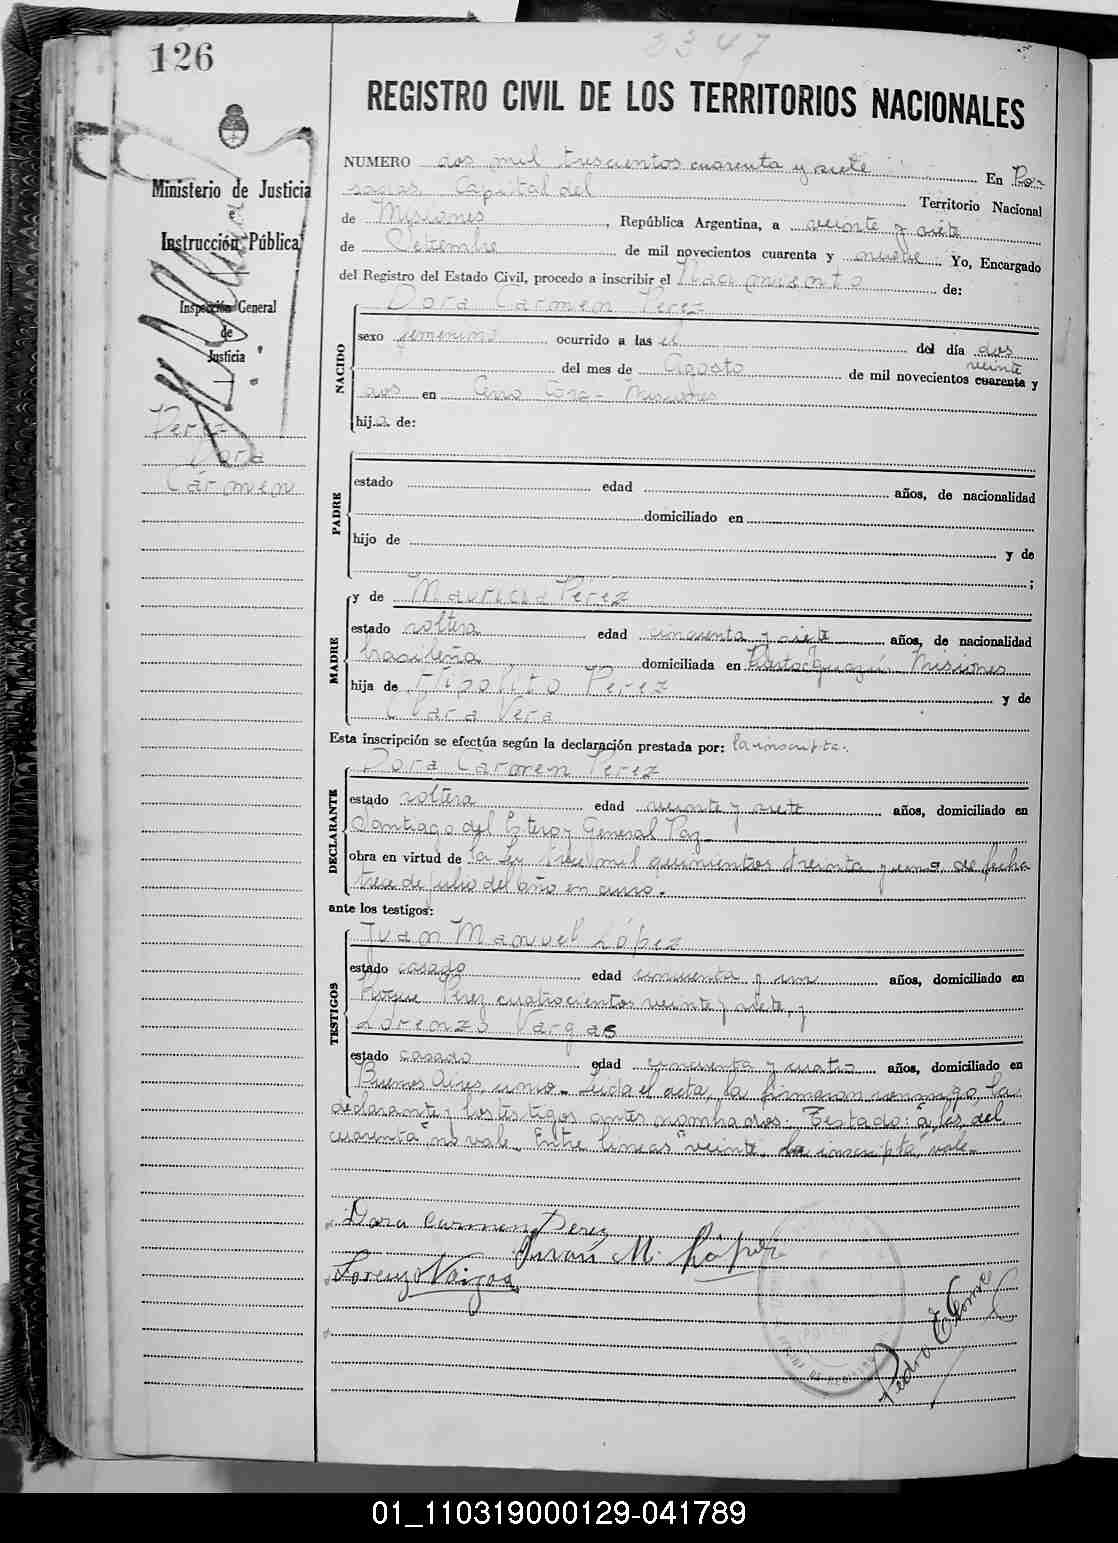 3347
126
REGISTRO CIVIL DE LOS TERRITORIOS NACIONALES
Ministerio de Justicia
Instrucción Pública
Inspección General
de
Justicia
Perez
Dora
Carmen
NUMERO dos mil trescientos cuarenta y siete En Po-
sadas, Capital del Territorio Nacional
de Misiones, República Argentina, a veinte y siete
de Setiembre de mil novecientos cuarenta y nueve Yo, Encargado
del Registro del Estado Civil, procedo a inscribir el Nacimiento de:
NACIDO
Dora Carmen Perez
sexo femenino ocurrido a las el del día dos
veinte
del mes de Agosto de mil novecientos cuarenta y
dos en Cerro Corá - Misiones
hija de:
PADRE
estado edad años, de nacionalidad
domiciliado en
hijo de y de
;
MADRE
y de Mauricia Perez
estado soltera edad cincuenta y siete años, de nacionalidad
brasileña domiciliada en Misiones
hija de Hipolito Perez y de
Clara Vera
Esta inscripción se efectúa según la declaración prestada por: la inscripta.
DECLARANTE
Dora Carmen Perez
estado soltera edad veinte y siete años, domiciliado en
Santiago del Estero y General Paz
obra en virtud de la Ley trece mil quinientos treinta y uno de fecha
trece de julio del año en curso.
ante los testigos:
TESTIGOS
Juan Manuel López
estado casado edad cincuenta y un años, domiciliado en
Roque Perez cuatrocientos veinte y siete, y
Lorenzo Vargas
estado casado edad cincuenta y cuatro años, domiciliado en
Buenos Aires, uno. Leida el acta, la firmaron conmigo, la
declarante y los testigos antes nombrados. Testado: "a las, del,
cuarenta" no vale. Entre lineas "veinte, la inscripta", vale.
Dora Carmen Perez
Juan M. López
Lorenzo Vargas
Pedro E.
01_110319000129-041789